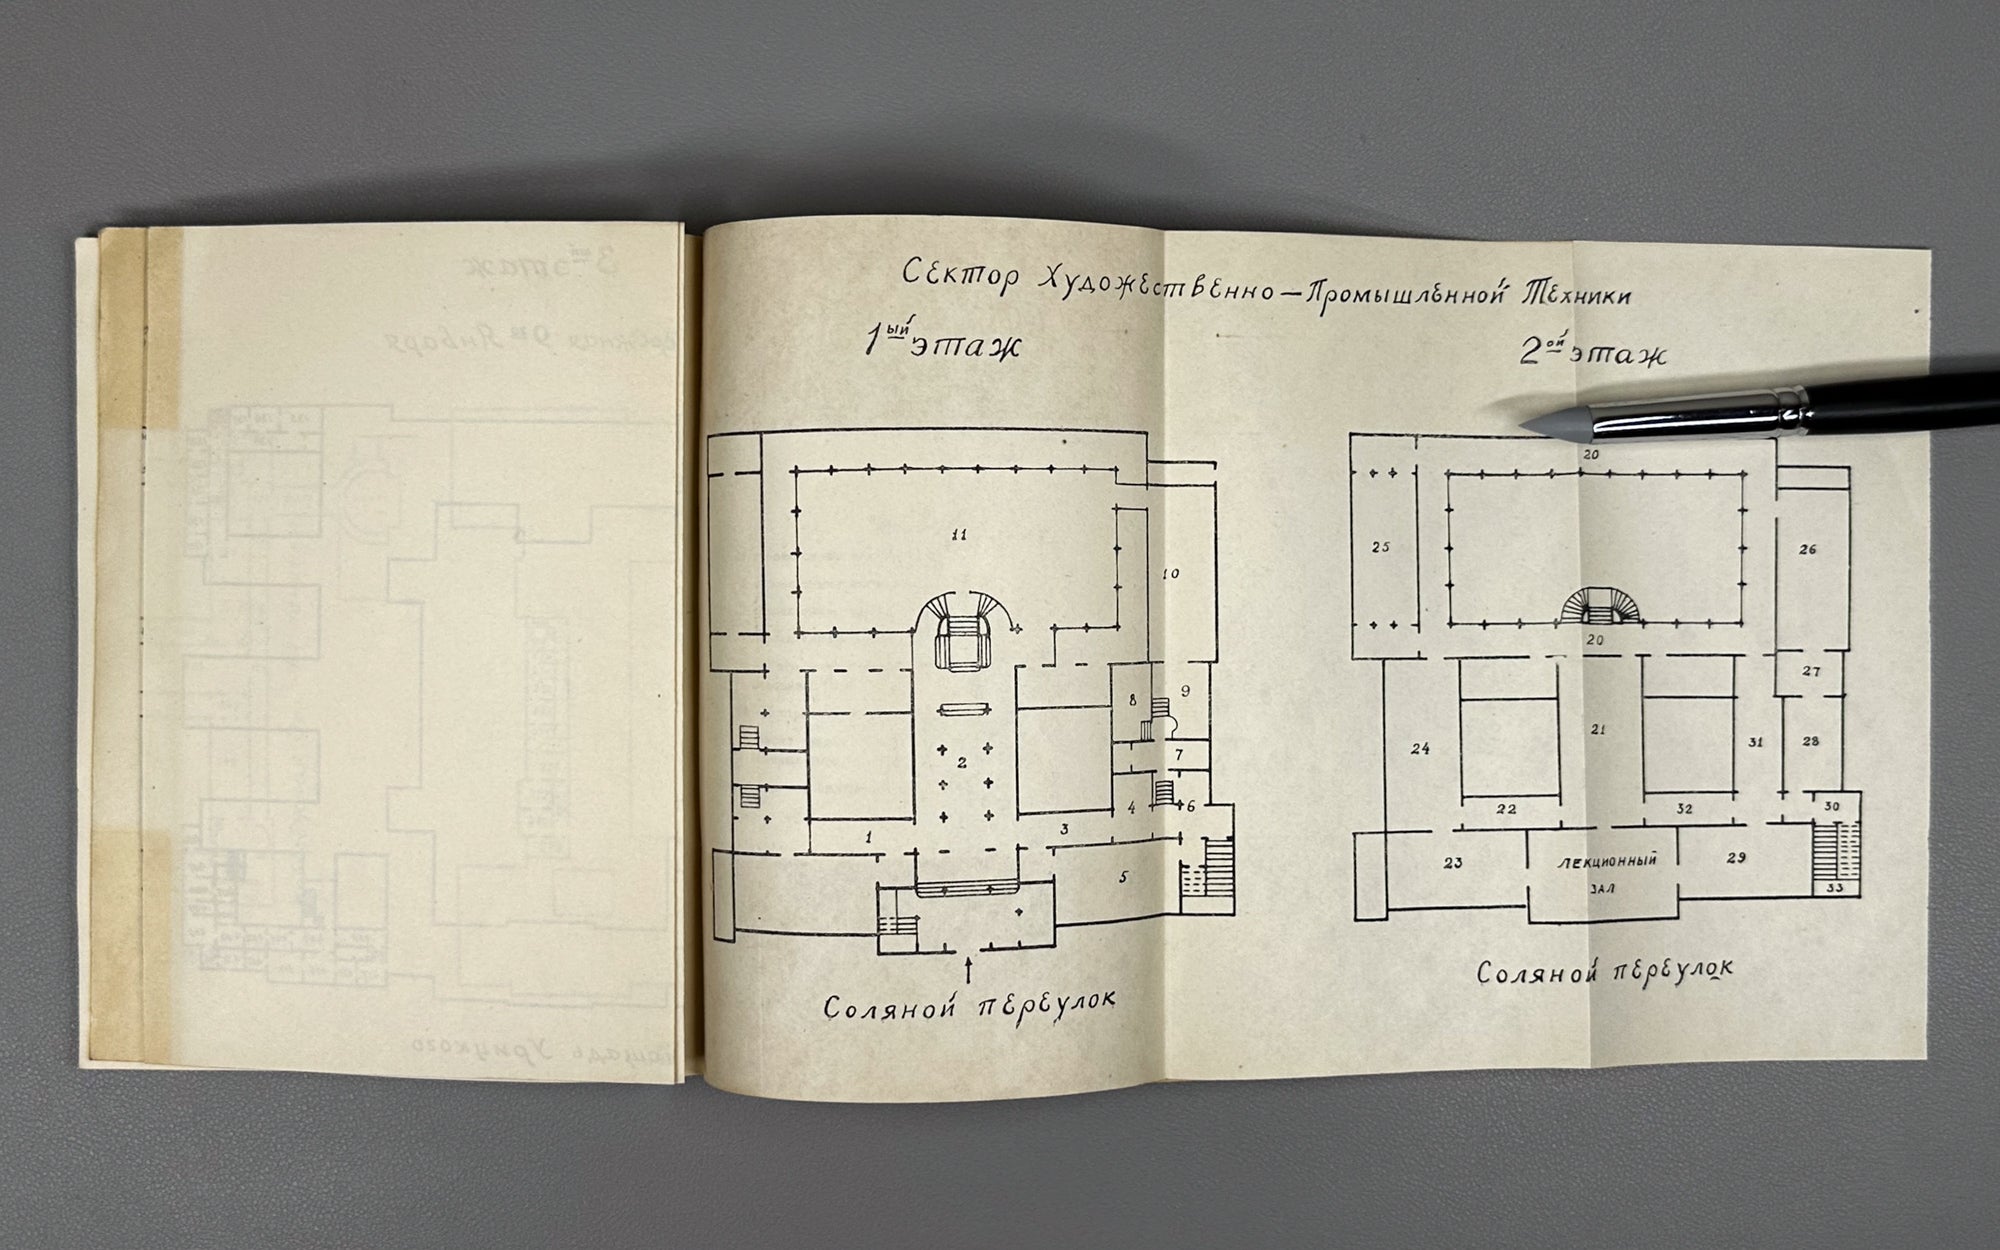 3ий этаж
9го Января
Площадь Урицкого
Сектор Художественно-Промышленной Техники
1ый этаж
11
10
8
9
7
2
4
6
1
3
5
Соляной переулок
2ой этаж
20
25
26
20
27
21
24
31
28
22
32
30
23
Лекционный
зал
29
33
Соляной переулок